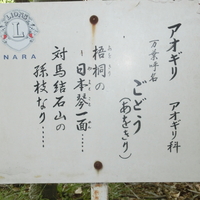 アオギリ　アオギリ科
万葉呼名
ごどう
(あをきり)
梧桐の
日本琴一面……
対馬結石山の
孫枝なり……
L
NARA